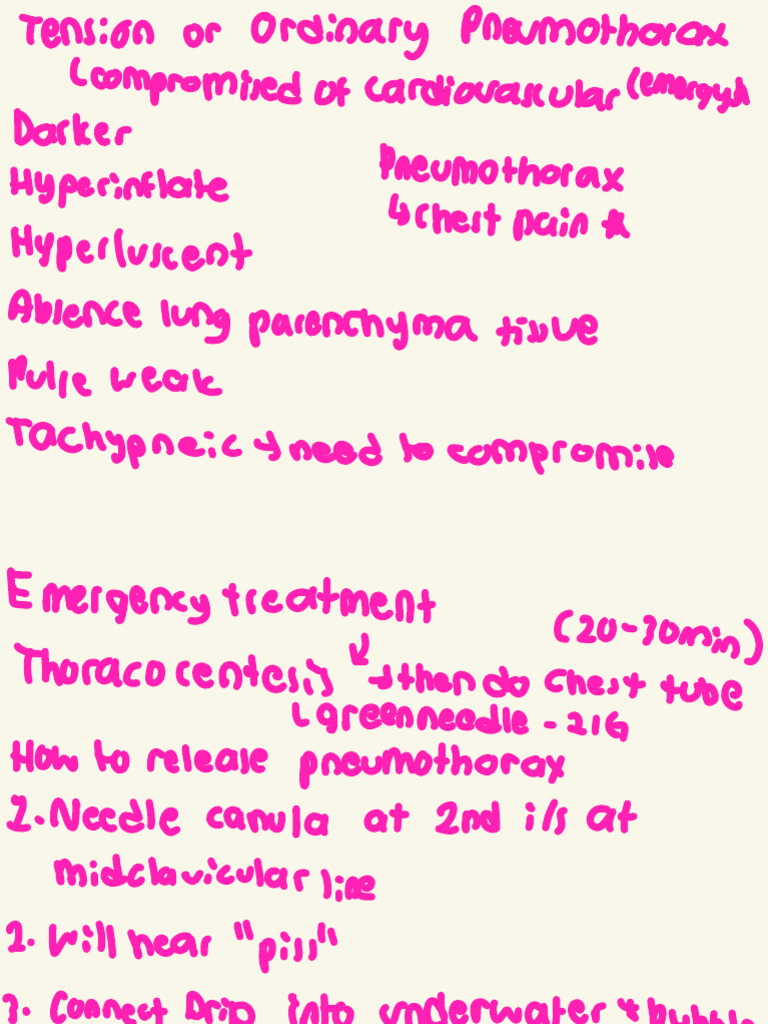 Tension or Ordinary Pneumothorax
(compromised of cardiovascular (emergysh
Darker
Hyperinflate
Pneumothorax
↳ chest pain ☆
Hyperluscent
Absence lung parenchyma tissue
Pulse weak
Tachypneic → need to compromise
Emergency treatment
(20-30min)
Thoracocentesis → then do chest tube
(green needle - 21G
How to release pneumothorax
1. Needle canula at 2nd i/s at
midclavicular line
2. Will hear "piss"
3. Connect Drip into underwater → bubble